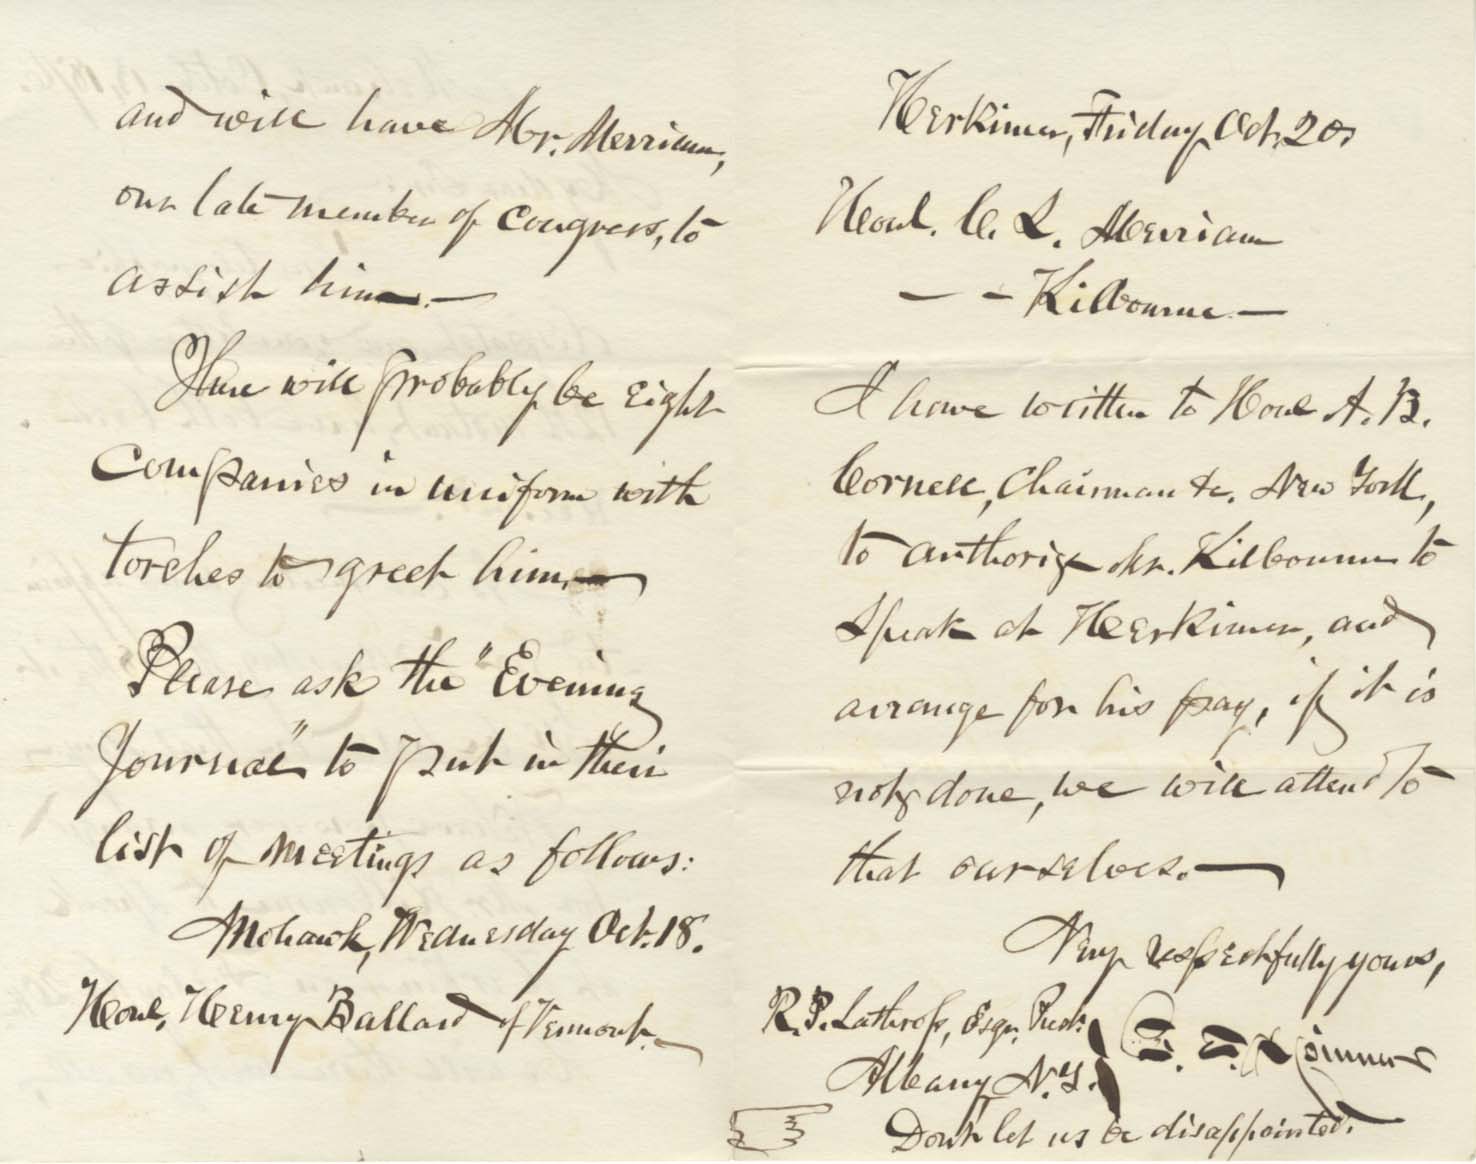 and will have Mr. Merriam,
our late member of Congress, to
assist him.—
There will probably be eight
companies in uniform with
torches to greet him.—
Please ask the "Evening
Journal" to put in their
list of meetings as follows:
Mohawk, Wednesday Oct. 18.
Honl. Henry Ballard of Vermont.—
Herkimer, Friday Oct. 20
Honl. C. L. Merriam
— - Kilbourne —
I have written to Honl A. B.
Cornell, Chairman &c. New York,
to authorize Mr. Kilbourne to
speak at Herkimer, and
arrange for his pay, if it is
not done, we will attend to
that ourselves.—
Very respectfully yours,
R. P. Lathrop, Esqr. Prest.
Albany N.Y.
Don't let us be disappointed.